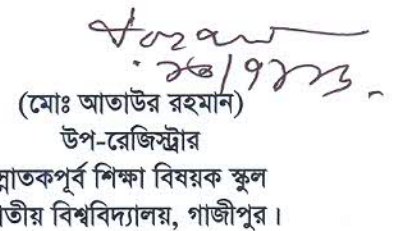 (মোঃ আতাউর রহমান)
উপ-রেজিস্ট্রার
স্নাতকপূর্ব শিক্ষা বিষয়ক স্কুল
তীয় বিশ্ববিদ্যালয়, গাজীপুর।